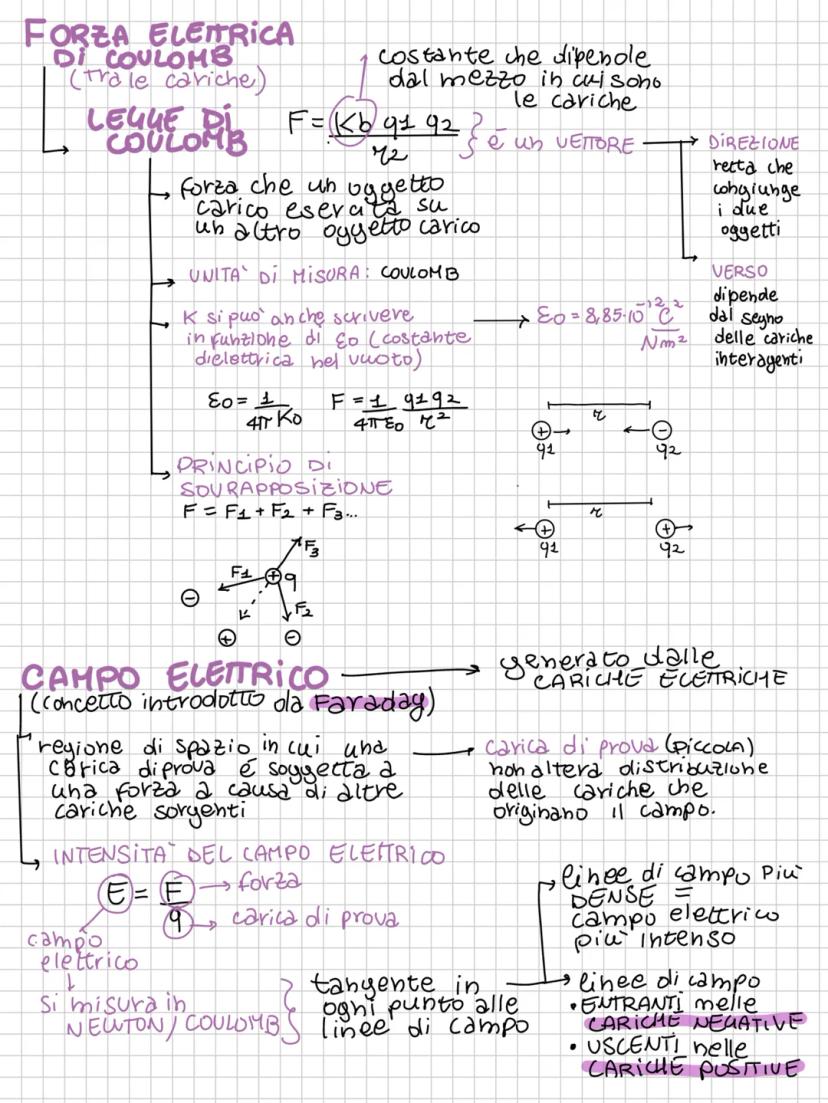 FORZA ELETTRICA
DI COULOMB
(tra le cariche)
costante che dipende
dal mezzo in cui sono
le cariche
LEGGE DI
COULOMB
F = Kb q1 q2
r2
é un VETTORE
DIREZIONE
retta che
congiunge
i due
oggetti
VERSO
dipende
dal segno
delle cariche
interagenti
forza che un oggetto
carico esercita su
un altro oggetto carico
UNITA' DI MISURA: COULOMB
K si puo' anche scrivere
in funzione di ε0 (costante
dielettrica nel vuoto)
ε0 = 8,85·10⁻¹² C²
Nm²
ε0 = 1
4π K0
F = 1 q1 q2
4π ε0 r²
r
+ −
q1 q2
r
+ +
q1 q2
PRINCIPIO DI
SOVRAPPOSIZIONE
F = F1 + F2 + F3...
F3
F1 + q
− F2
+ −
CAMPO ELETTRICO
generato dalle
CARICHE ELETTRICHE
(concetto introdotto da Faraday)
regione di spazio in cui una
carica di prova é soggetta a
una forza a causa di altre
cariche sorgenti
carica di prova (PICCOLA)
non altera distribuzione
delle cariche che
originano il campo.
INTENSITA' DEL CAMPO ELETTRICO
E = F
q
forza
carica di prova
campo
elettrico
si misura in
NEWTON/COULOMB
tangente in
ogni punto alle
linee di campo
linee di campo piu'
DENSE =
campo elettrico
piu' intenso
linee di campo
• ENTRANTI nelle
CARICHE NEGATIVE
• USCENTI nelle
CARICHE POSITIVE